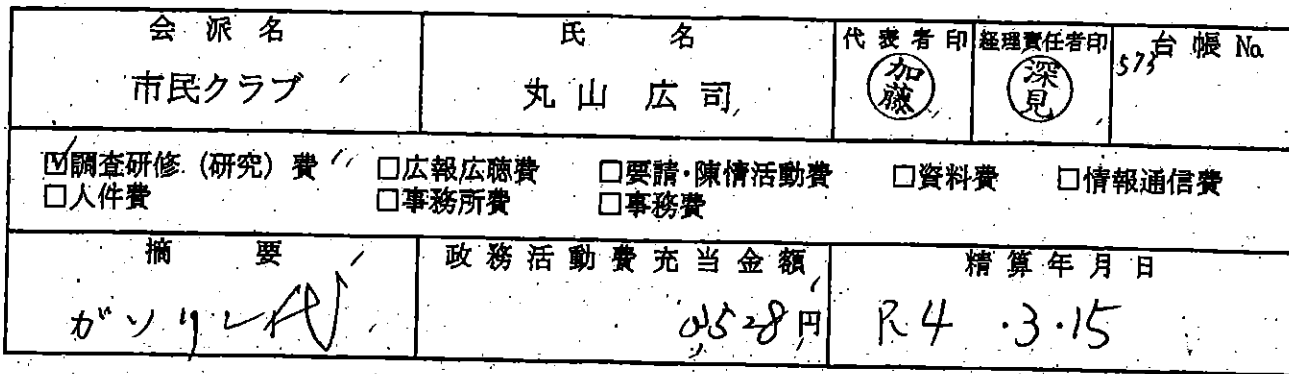 会派名 氏名 代表者印 経理責任者印 台帳No.
市民クラブ 丸山広司 加藤 深見 573
☑調査研修(研究)費 □広報広聴費 □要請・陳情活動費 □資料費 □情報通信費
□人件費 □事務所費 □事務費
摘要 政務活動費充当金額 精算年月日
ガソリン代 円 R.4・3・15